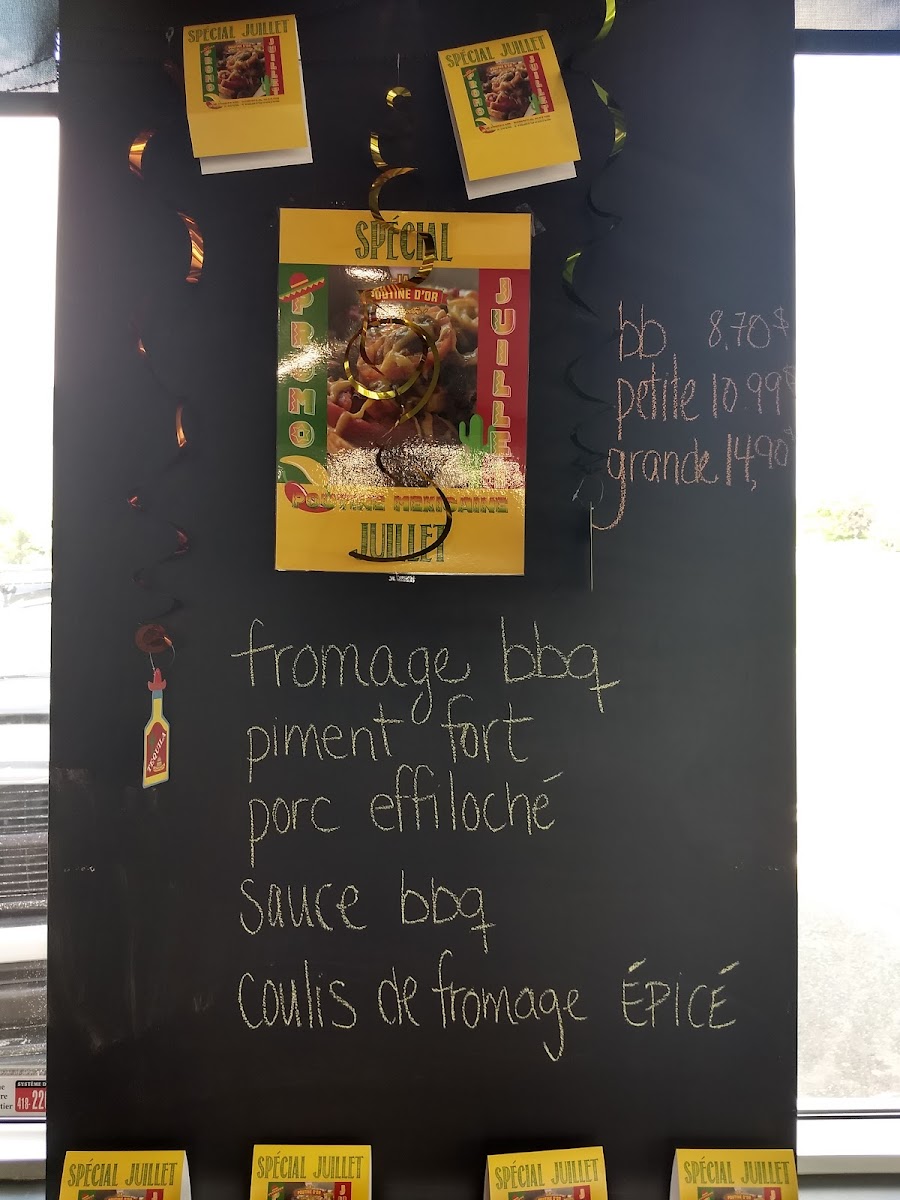 SPÉCIAL JUILLET
PROMO
JUILLET
SPÉCIAL JUILLET
PROMO
JUILLET
SPÉCIAL
LA
POUTINE D'OR
PROMO
JUILLET
POUTINE MEXICAINE
JUILLET
bb 8,70$
petite 10.99$
grande 14,90$
fromage bbq
piment fort
porc effiloché
sauce bbq
coulis de fromage ÉPICÉ
TEQUILA
418-22
SPÉCIAL JUILLET
SPÉCIAL JUILLET
SPÉCIAL JUILLET
SPÉCIAL JUILLET